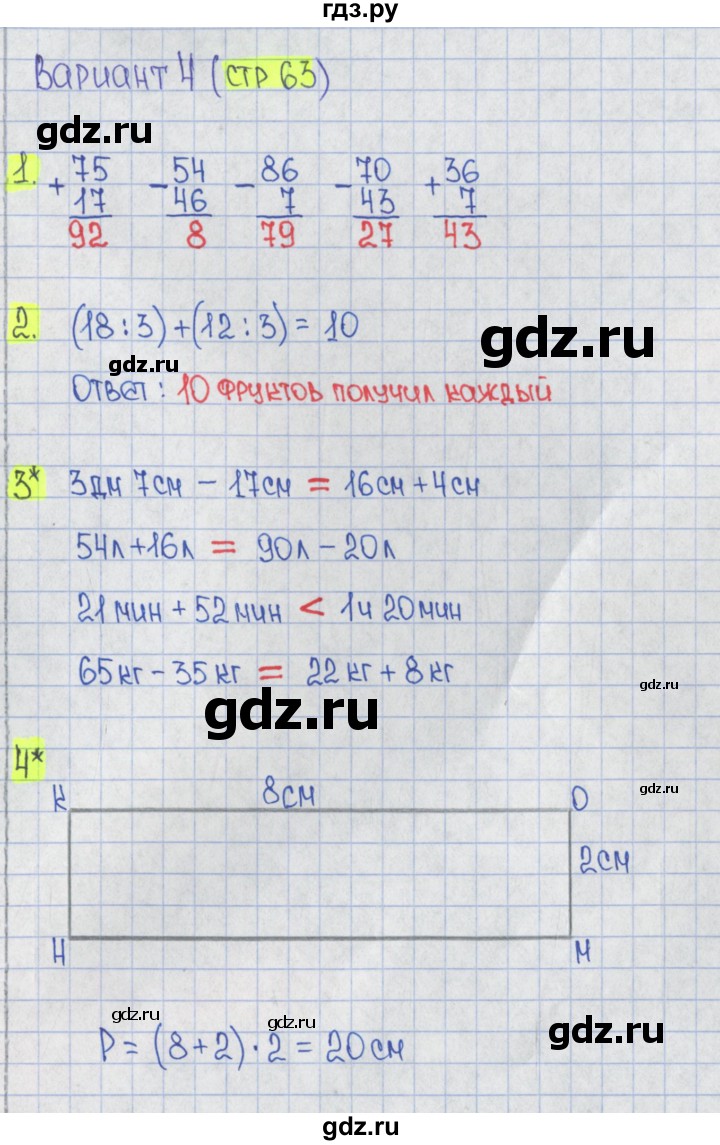 гдз.ру
Вариант 4 (стр 63)
gdz.ru
1. + 75 - 54 - 86 - 70 + 36
17 46 7 43 7
92 8 79 27 43
2. (18 : 3) + (12 : 3) = 10
gdz.ru
gdz.ru
Ответ : 10 фруктов получил каждый
3* 3дм 7см - 17см = 16см + 4см
54л + 16л = 90л - 20л
21мин + 52мин < 1ч 20мин
65кг - 35кг = 22кг + 8кг
gdz.ru
gdz.ru
4*
gdz.ru
К 8см О
2см
Н М
gdz.ru
gdz.ru
gdz.ru
Р = (8 + 2) · 2 = 20см
gdz.ru